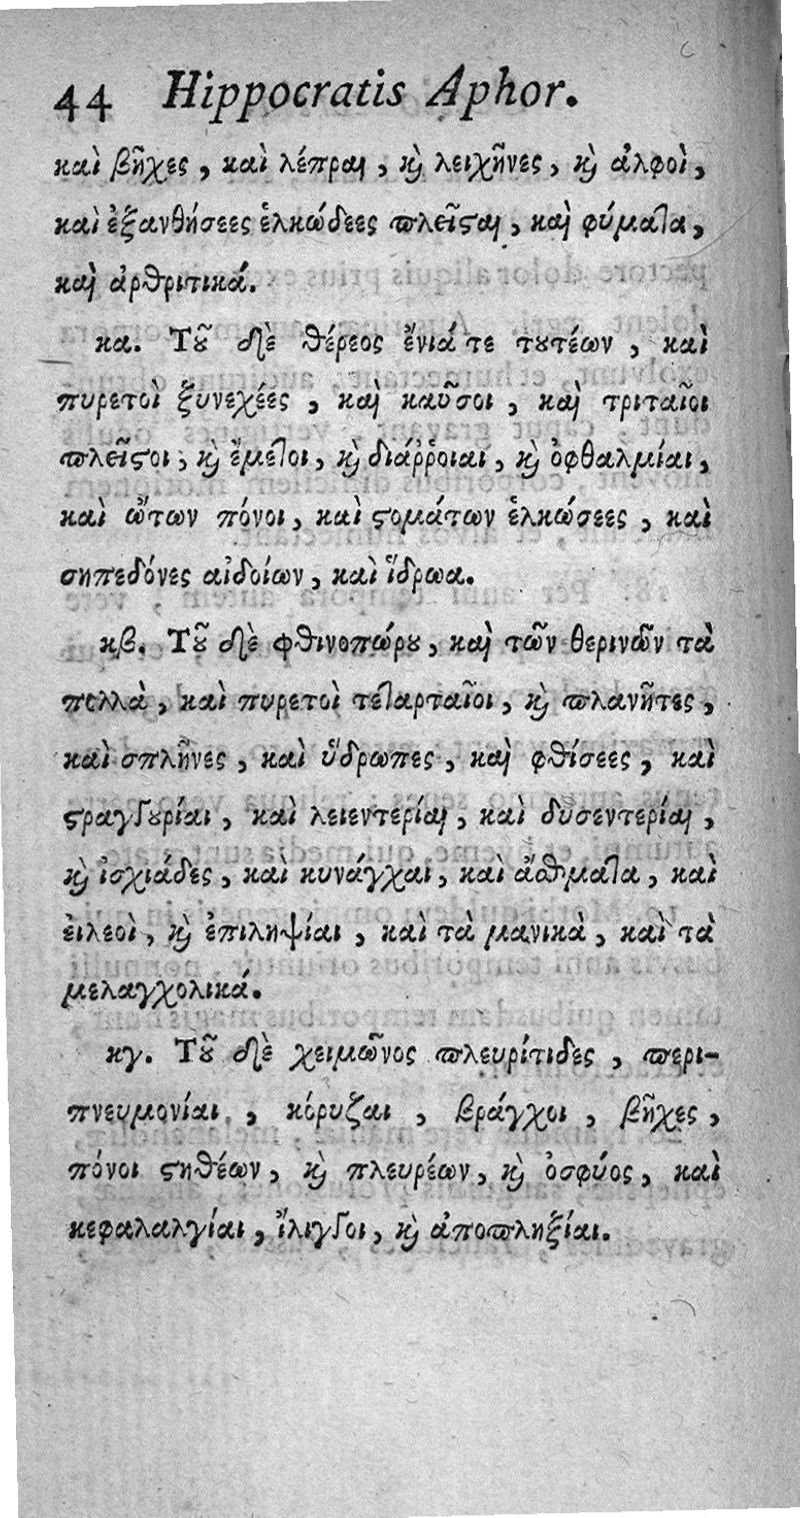 44 Hippocratis Aphor.
καὶ βῆχες, καὶ λέπραι, καὶ λειχῆνες, καὶ ἀλφοὶ,
καὶ ἐξανθήσεες ἑλκώδεες πλεῖσται, καὶ φύματα,
καὶ ἀρθριτικά.
κα. Τοῦ δὲ θέρεος ἔνιά τε τουτέων, καὶ
πυρετοὶ ξυνεχέες, καὶ καῦσοι, καὶ τριταῖοι
πλεῖστοι, καὶ ἔμετοι, καὶ διάῤῥοιαι, καὶ ὀφθαλμίαι,
καὶ ὤτων πόνοι, καὶ στομάτων ἑλκώσεες, καὶ
σηπεδόνες αἰδοίων, καὶ ἵδρωα.
κβ. Τοῦ δὲ φθινοπώρου, καὶ τῶν θερινῶν τὰ
πολλὰ, καὶ πυρετοὶ τεταρταῖοι, καὶ πλανῆτες,
καὶ σπλῆνες, καὶ ὕδρωπες, καὶ φθίσεες, καὶ
στραγγουρίαι, καὶ λειεντερίαι, καὶ δυσεντερίαι,
καὶ ἰσχιάδες, καὶ κυνάγχαι, καὶ ἄσθματα, καὶ
εἰλεοὶ, καὶ ἐπιληψίαι, καὶ τὰ μανικὰ, καὶ τὰ
μελαγχολικά.
κγ. Τοῦ δὲ χειμῶνος πλευρίτιδες, περι-
πνευμονίαι, κόρυζαι, βράγχοι, βῆχες,
πόνοι στηθέων, καὶ πλευρέων, καὶ ὀσφύος, καὶ
κεφαλαλγίαι, ἴλιγγοι, καὶ ἀποπληξίαι.